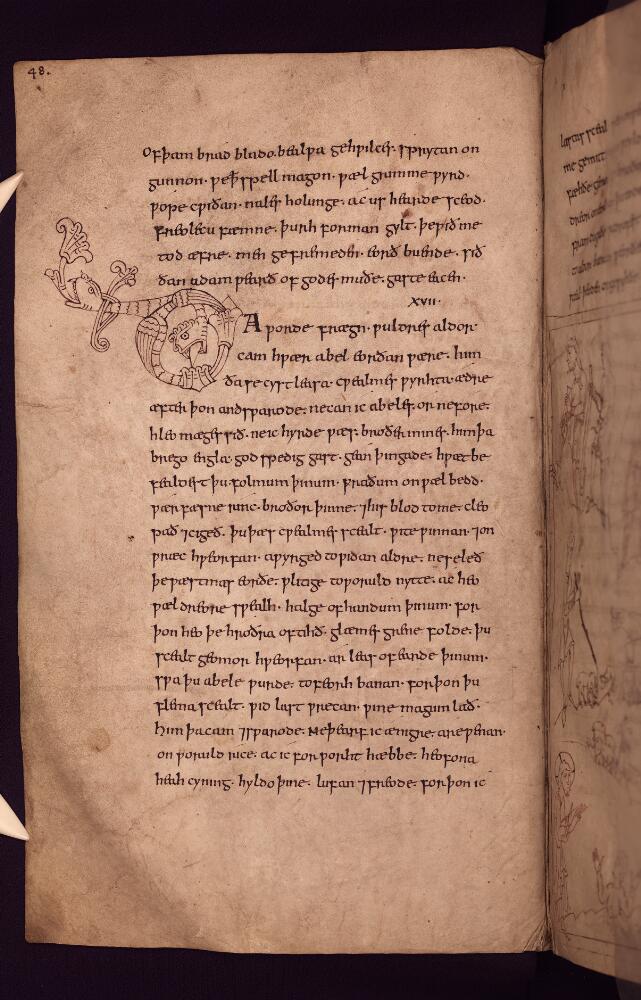 48.
of þam brad blado. bealƿa gehƿilces. sprytan on
gunnon. ƿe þ spell magon. ƿæl grimme ƿyrd.
ƿope cƿiðan. nales holunge. ac us hearde sceod.
freolecu fæmne. þurh forman gylt. þe ƿið me
tod æfre. men gefremeden. eorð buende. sið
ðan adam ƿearð of godes muðe. gaste eacen.
xvii.
ÐA ƿorde frægn. ƿuldres aldor.
cain hƿær abel eorðan ƿære. him
ða se cyst leasa. cƿealmes ƿyrhta. ædre
æfter þon andsƿarode. ne can ic abeles. or ne fore.
hleo mæges sið. ne ic hyrde ƿæs. broðer mines. him þa
brego engla. god spedig gast. gean þingade. hƿæt be
fealdest þu. folmum þinum. ƿraðum on ƿæl bedd.
ƿær fæsne rinc. broðor þinne. ⁊ his blod to me. cleo
pað ⁊ ciged. þu þæs cƿealmes scealt. ƿite ƿinnan. ⁊ on
ƿræc hƿeorfan. aƿyrged to ƿidan aldre. ne seleð
þe ƿæstmas eorðe. ƿlitige to ƿoruld nytte. ac heo
ƿæl dreore sƿealh. halge of handum þinum. for
þon heo þe hroðra oftihð. glæmes grene folde. þu
scealt geomor hƿeorfan. ar leas of earde þinum.
sƿa þu abele ƿurde. to feorh banan. for þon þu
flema scealt. ƿid last ƿrecan. ƿine magum lað.
him þa cain ⁊sƿarode. Ne þearf ic ænigre are ƿenan.
on ƿoruld rice. ac ic for ƿorht hæbbe. heofona
heah cyning. hyldo þine. lufan ⁊ freode. for þon ic